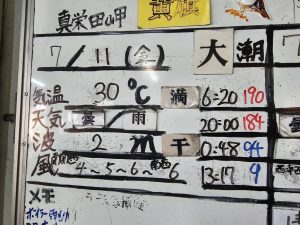 真栄田岬
7/11(金) 大潮
気温 30℃ 満 6:20 190
天気 曇/雨 20:00 184
波 2 m 干 0:48 94
風 4～5～6～ 6 13:17 9
メモ